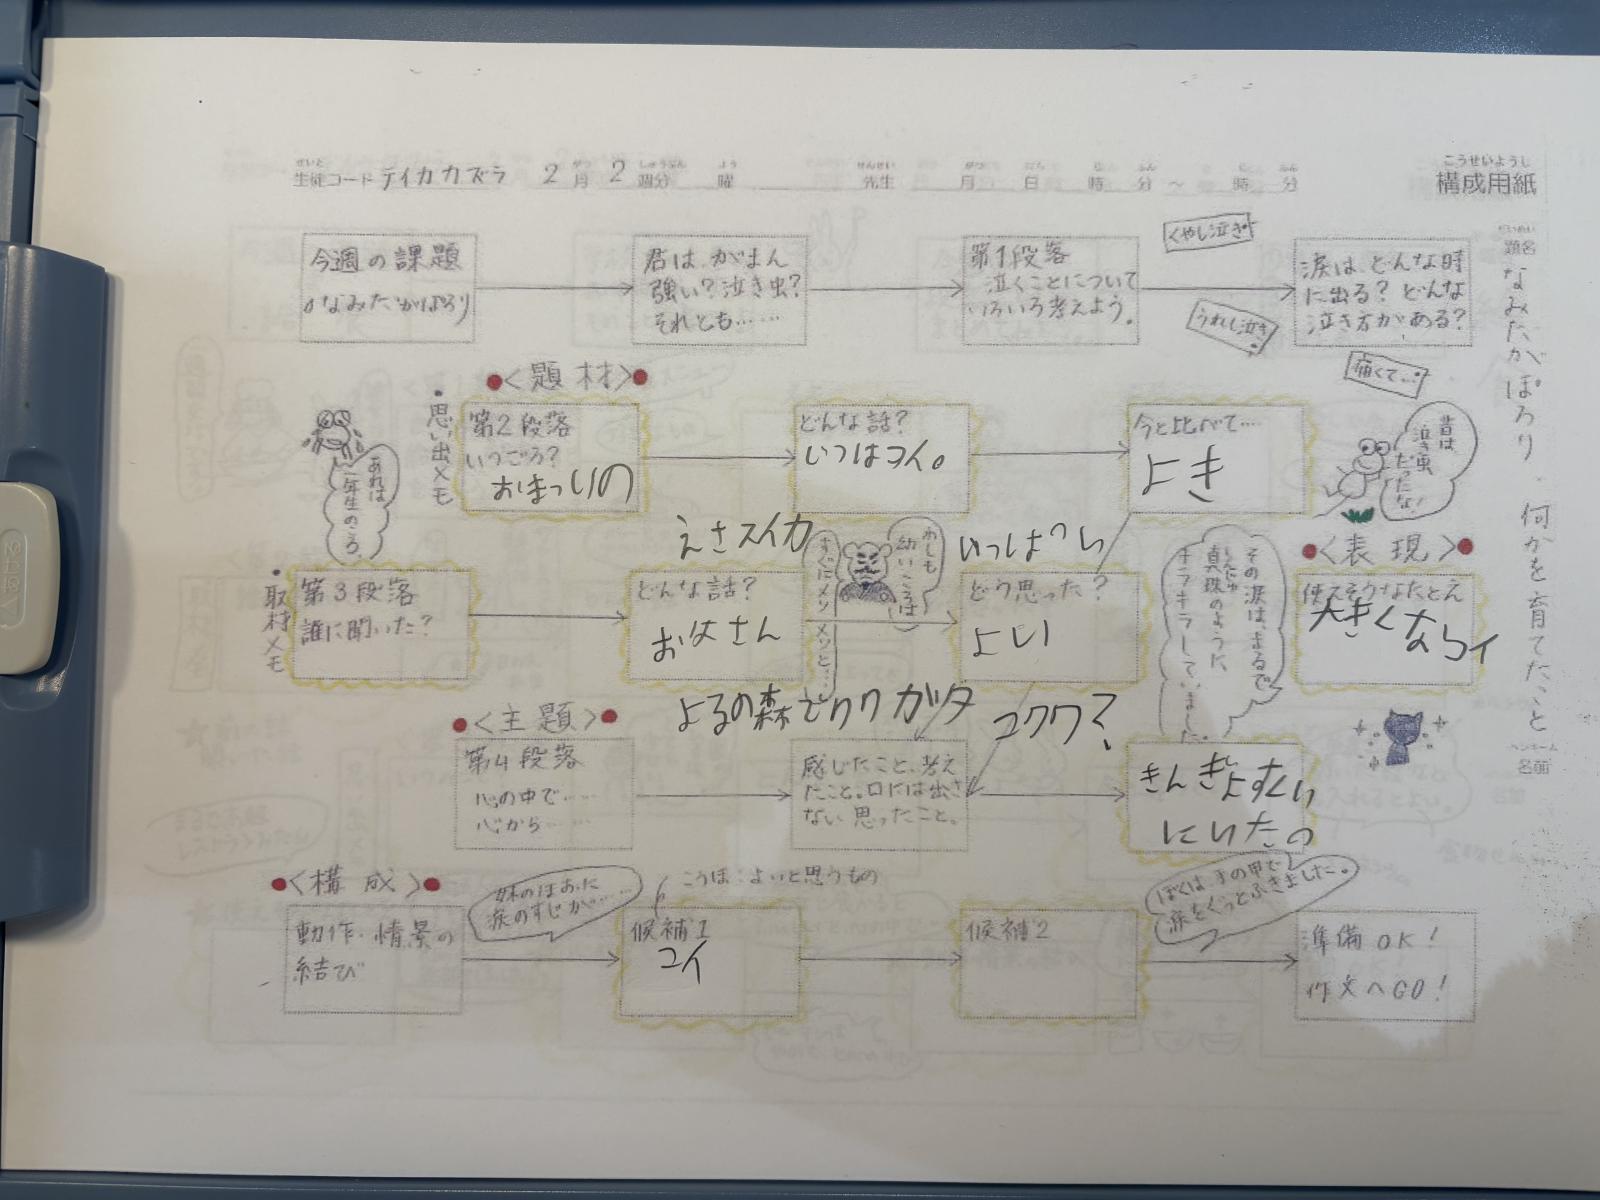 せいと がつ しゅうぶん よう せんせい がつ にち じ ふん じ ふん
生徒コード テイカカズラ 2月 2週分 曜 先生 月 日 時 分 ～ 時 分
こうせいようし
構成用紙
だいめい
題名
なみだがぽろり・何かを育てたこと
ペンネーム
名前
今週の課題
なみだがぽろり
君は、がまん
強い？泣き虫？
それとも……
第1段落
泣くことについて
いろいろ考えよう。
くやし泣き
うれし泣き
涙は、どんな時
に出る？どんな
泣き方がある？
痛くて…
<題材>
・思い出メモ
あれは
一年生のころ、
第2段落
いつごろ？
おまつりの
どんな話？
いつはコイ。
今と比べて…
よき
昔は
泣き虫
だったな！
・取材メモ
第3段落
誰に聞いた？
えさスイカ
どんな話？
お父さん
わしも
幼いころは
すぐにメソメソと…
いっぱい
どう思った？
よい
その涙は、まるで
しんじゅ
真珠のように
キラキラしていました。
<表現>
使えそうなたとえ
大きくならイ
よるの森でクワガタ
コクワマ
<主題>
第4段落
心の中で……
心から……
感じたこと、考え
たこと。口には出さ
ない思ったこと。
きんぎょすくい
にいたの
<構成>
動作・情景の
結び
妹のほおに
涙のすじが……
こうほ：よいと思うもの
候補1
コイ
候補2
ぼくは、手の甲で
涙をぐっとふきました。
準備OK！
作文へGO！